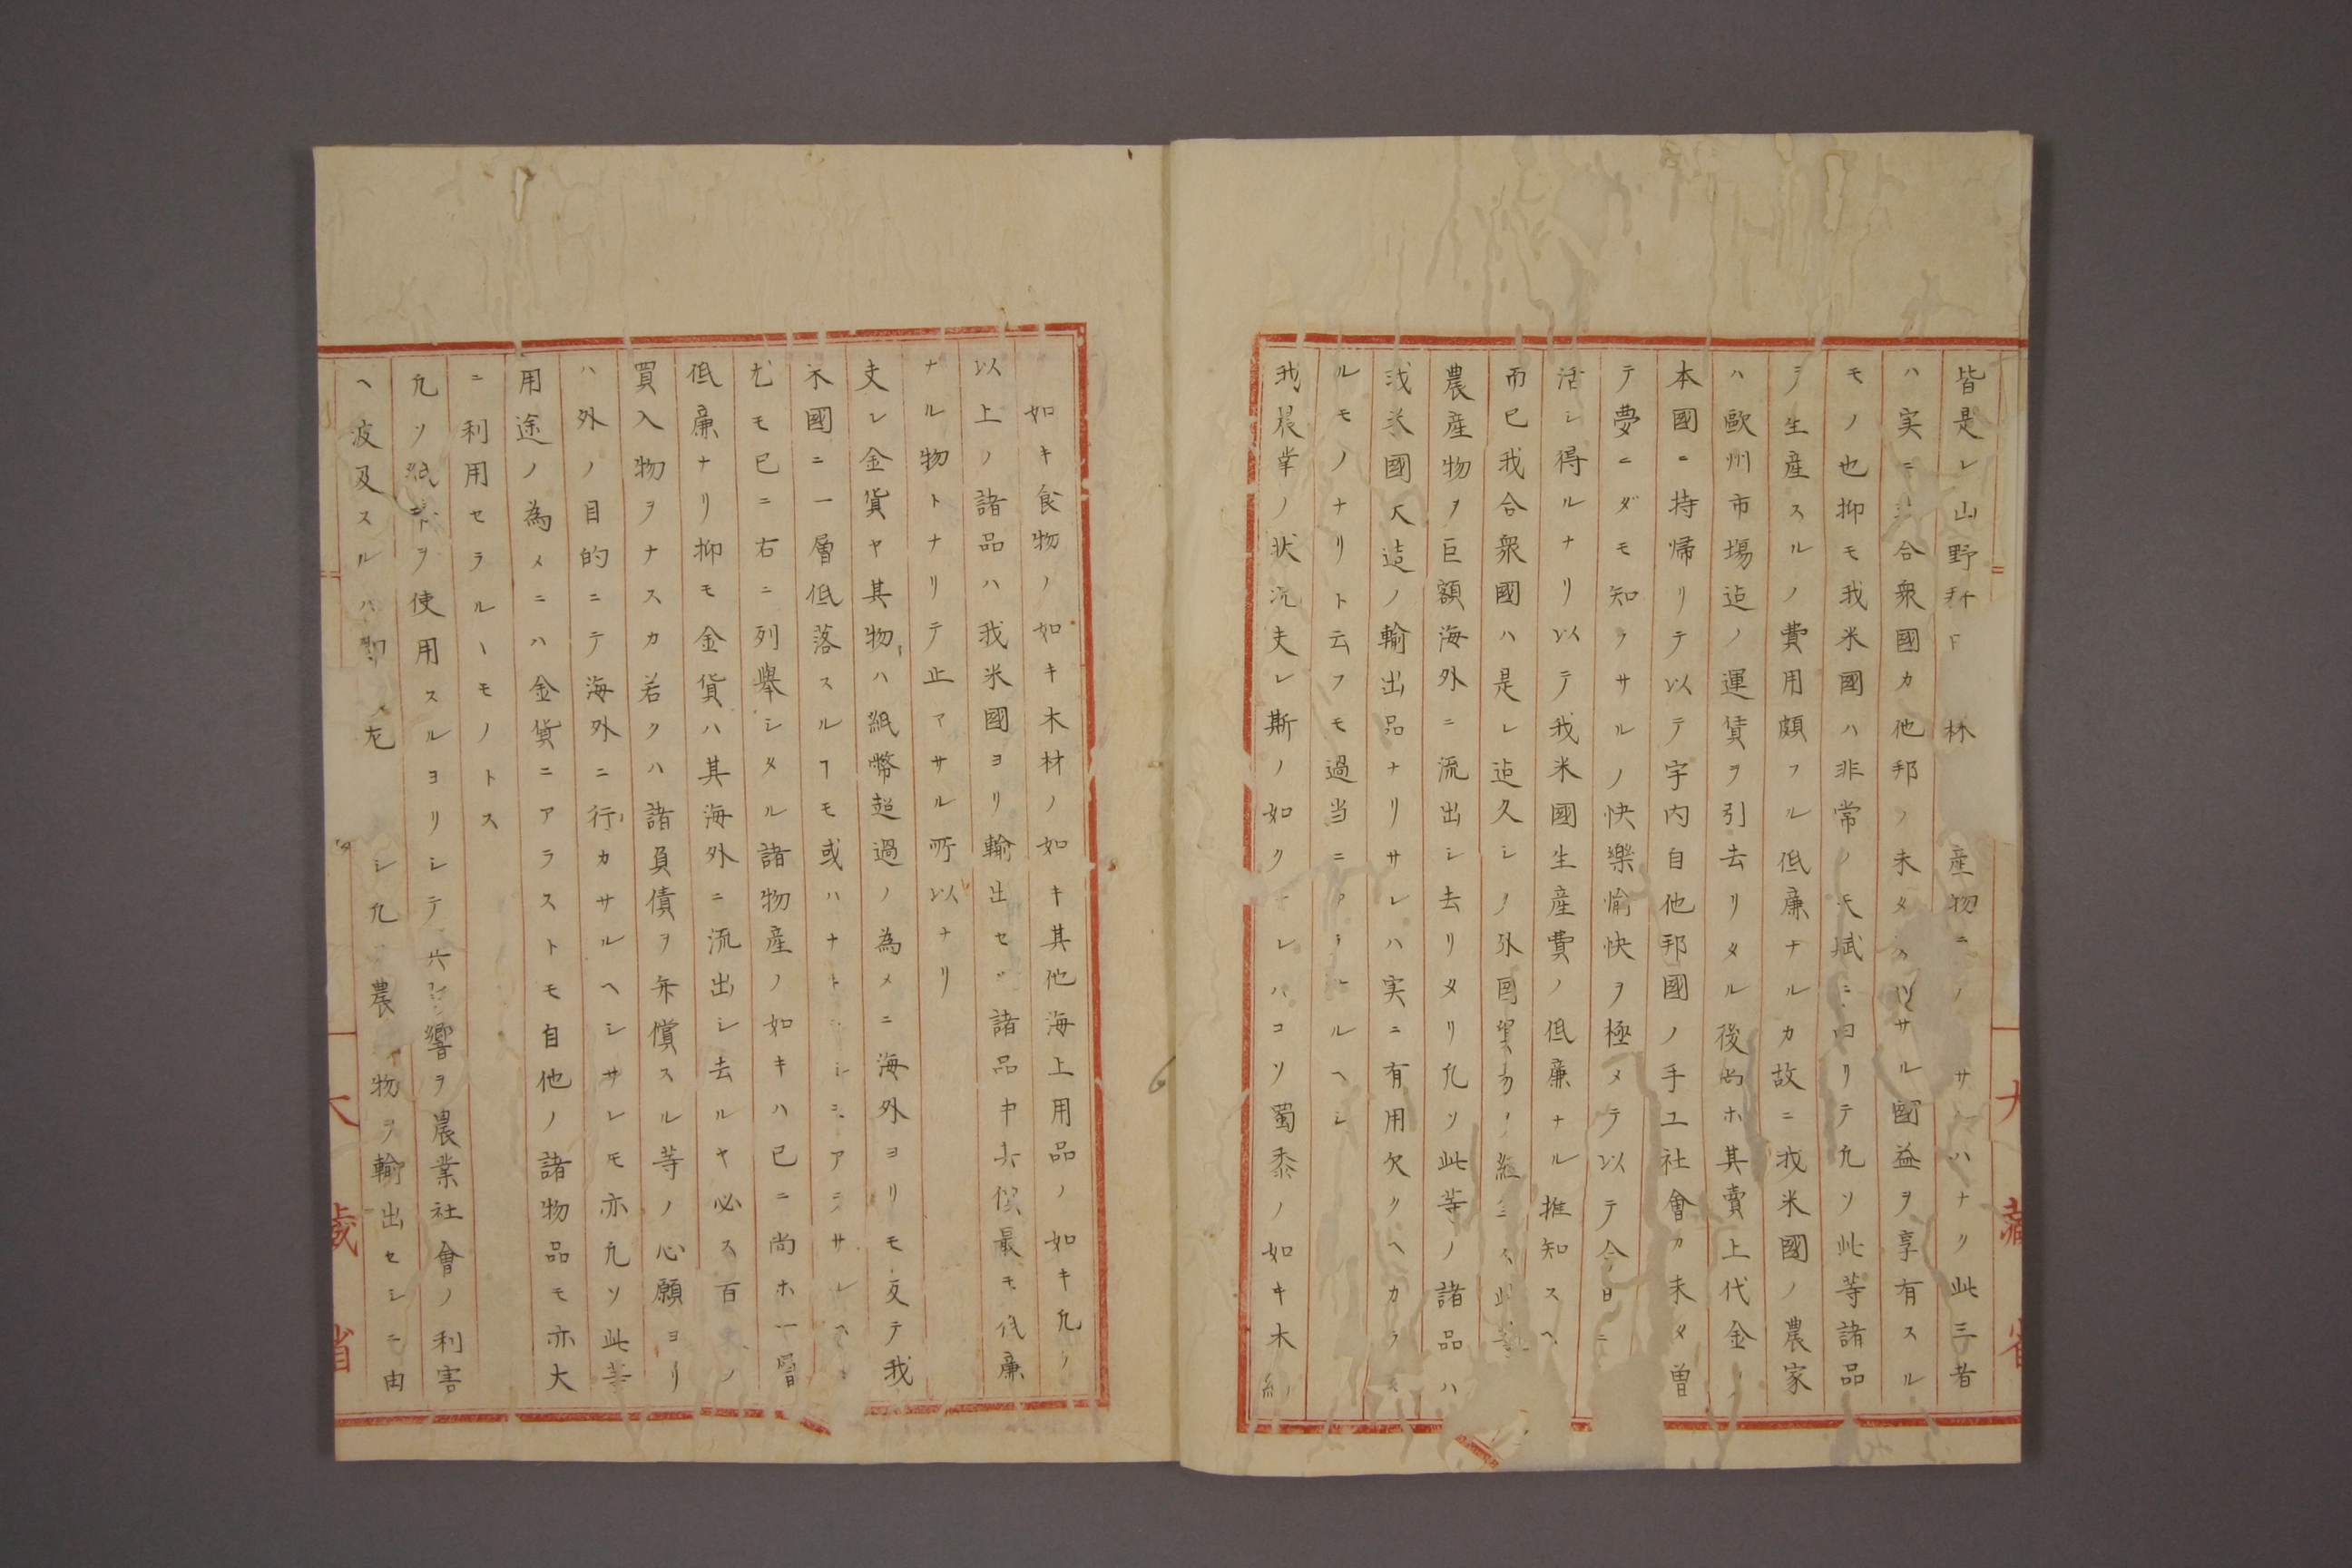 皆是レ山野 林 産物ニ サ ハナク此三者
ハ実ニ 合衆國カ他邦ノ未タ サル國益ヲ享有スル
モノ也抑モ我米國ハ非常ノ天賦ニ因リテ凡ソ此等諸品
ヲ生産スルノ費用頗フル低廉ナルカ故ニ我米國ノ農家
ハ歐州市場迠ノ運賃ヲ引去リタル後尚ホ其賣上代金ノ
本國ニ持帰リテ以テ宇内自他邦國ノ手工社會カ未タ曽
テ夢ニダモ知ラサルノ快樂愉快ヲ極メテ以テ今日ニ
活シ得ルナリ以テ我米國生産費ノ低廉ナル推知スヘ
而已我合衆國ハ是レ迠久シク外国貿易ノ 此等
農産物ヲ巨額海外ニ流出シ去リタリ凡ソ此等ノ諸品ハ
我米國天造ノ輸出品ナリサレハ実ニ有用欠クヘカラ
ルモノナリト云フモ過当ニアラ ルヘシ
我農業ノ状況夫レ斯ノ如クナレハコソ蜀黍ノ如キ木綿ノ
如キ食物ノ如キ木材ノ如キ其他海上用品ノ如キ凡ソ
以上ノ諸品ハ我米國ヨリ輸出セシ諸品中 最モ低廉
ナル物トナリテ止マサル所以ナリ
夫レ金貨ヤ其物ハ紙幣超過ノ為メニ海外ヨリモ反テ我
米國ニ一層低落スルヿモ或ハナ シ アラサレ
尤モ已ニ右ニ列舉シタル諸物産ノ如キハ已ニ尚ホ一層
低廉ナリ抑モ金貨ハ其海外ニ流出シ去ルヤ必ス百 ノ
買入物ヲナスカ若クハ諸負債ヲ弁償スル等ノ心願ヨリ
ハ外ノ目的ニテ海外ニ行カサルヘシサレモ亦凡ソ此等
用途ノ為メニハ金貨ニアラストモ自他ノ諸物品モ亦大
ニ利用セラルヽモノトス
凡ソ紙幣ヲ使用スルヨリシテ 響ヲ農業社會ノ利害
ヘ波及スルハ シ凡 農 物ヲ輸出セシモ由
大藏省
大藏省